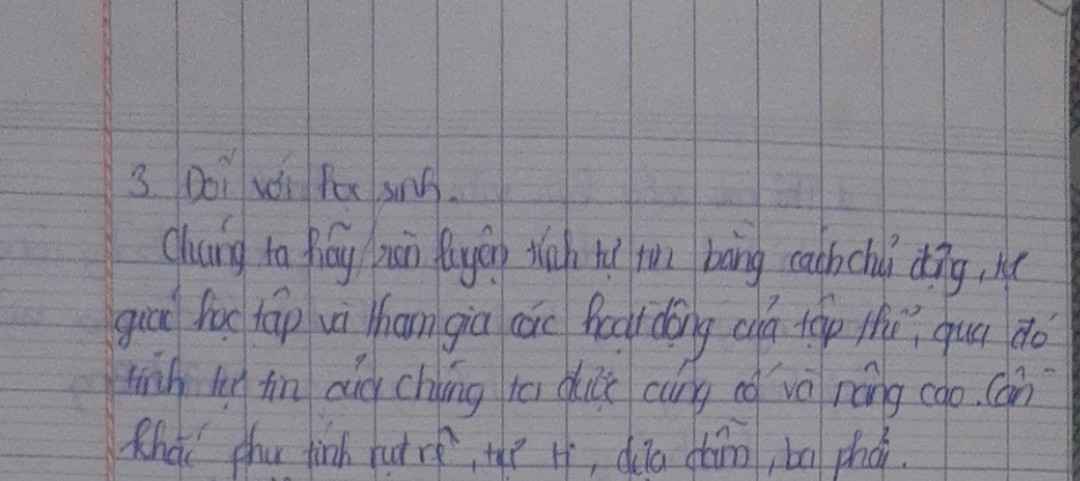 3. Đối với học sinh.
Chúng ta hãy rèn luyện tính tự tin bằng cách chủ động, tự
giác học tập và tham gia các hoạt động của tập thể, qua đó
tính tự tin của chúng ta được củng cố và nâng cao. Cần
khắc phục tính rụt rè, tự ti, dựa dẫm, ba phải.